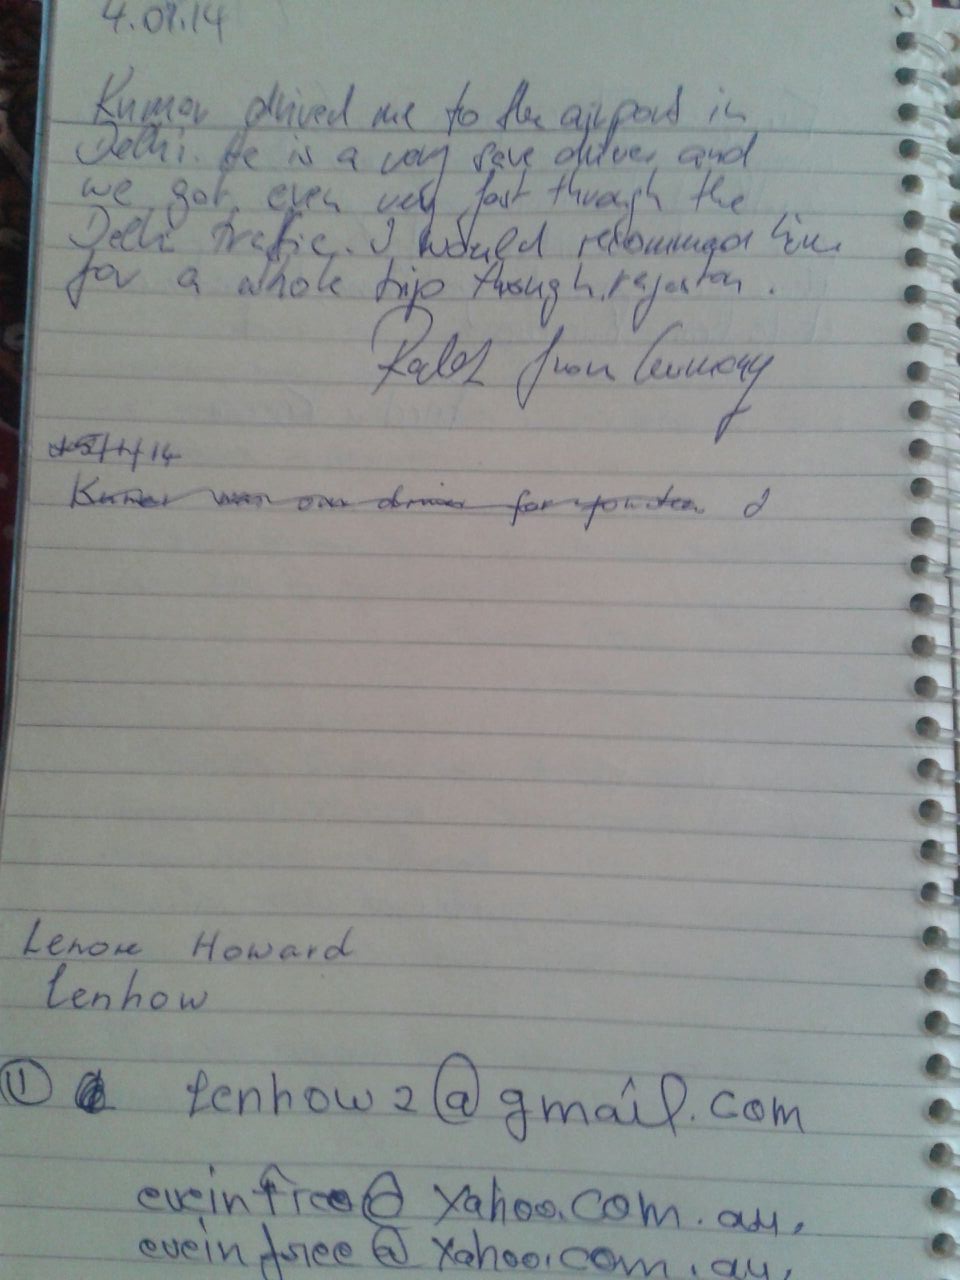 4.09.14
Kumar drived me to the airport in
Delhi. He is a very save driver and
we got even very fast through the
Delhi trafic. I would recommend him
for a whole trip though rajastan.
Ralf from Germany
Kumar was our driver for
Lenore Howard
lenhow
1 lenhow2@gmail.com
eveinfree@yahoo.com.au.
eveinfree@yahoo.com.au.